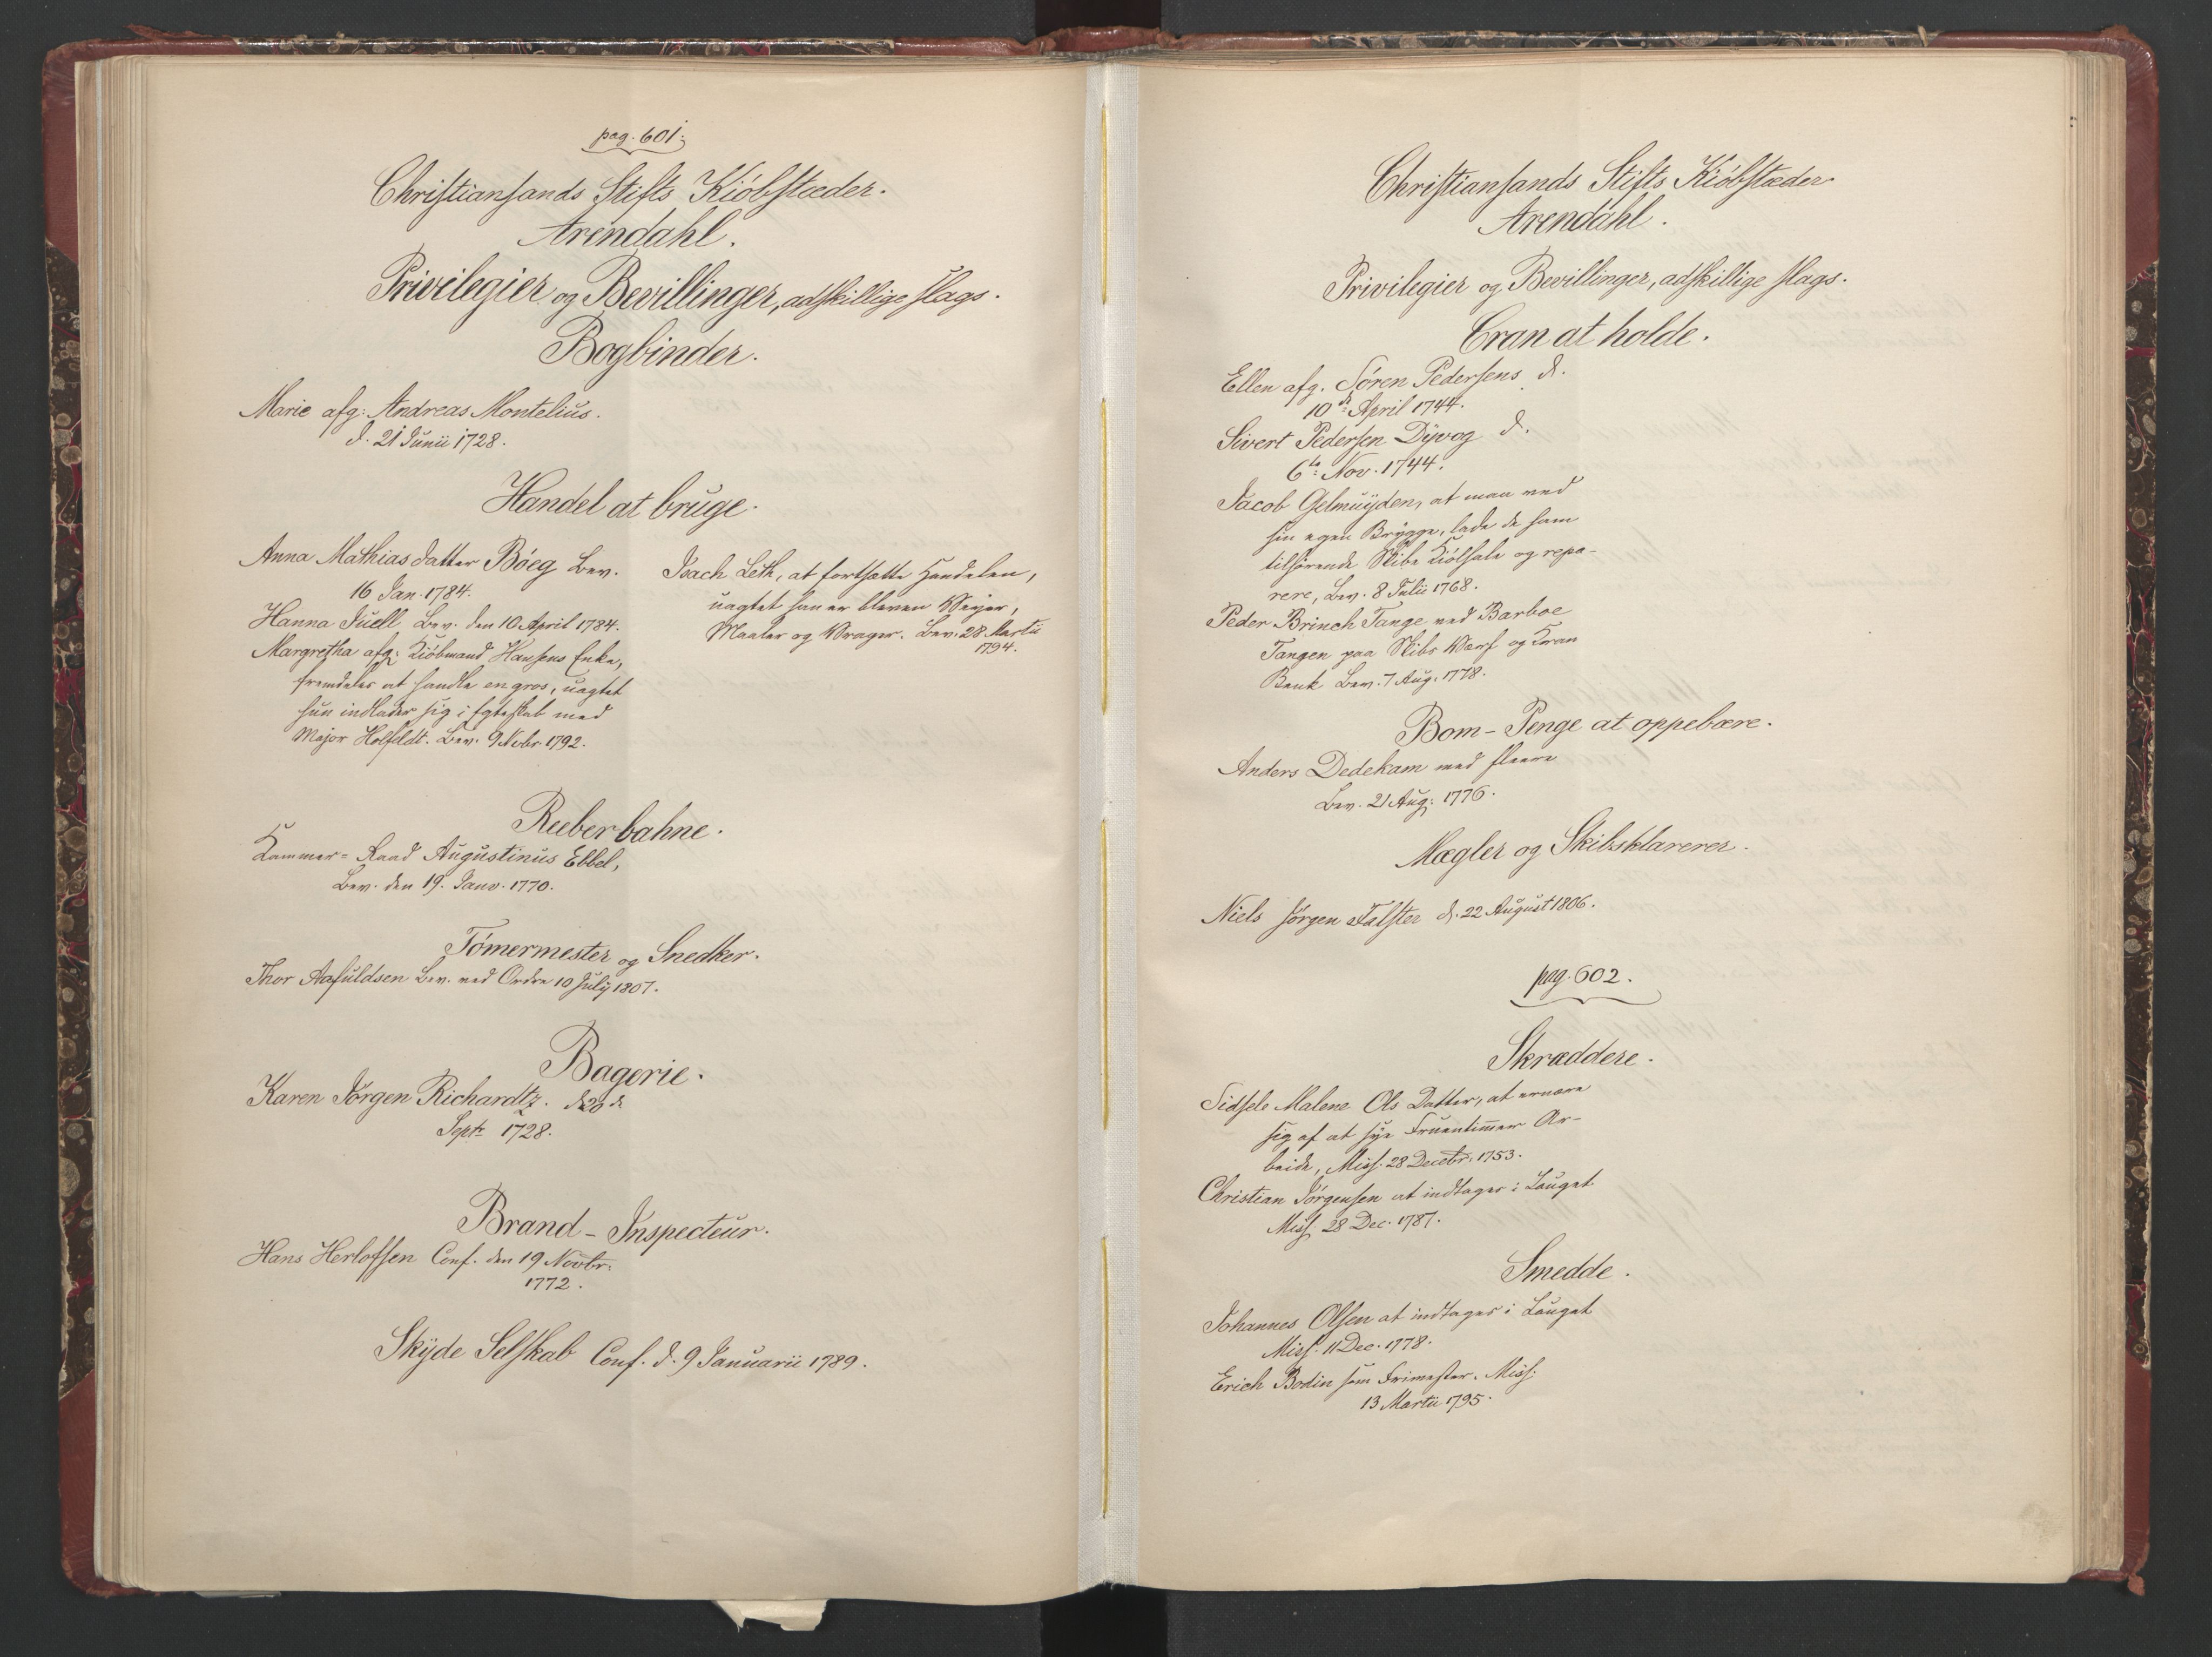 pag. 601.
Christiansands Stifts Kiöbstæder.
Arendahl.
Privilegier og Bevillinger, adskillige slags.
Bogbinder.
Marie afg: Andreas Montelius.
d. 21 Junii 1728.
Handel at bruge.
Anna Mathiasdatter Böeg Bev.
16 Jan. 1784.
Hanna Juell Bev. den 10 April 1784.
Margretha afg: Kiöbmand Hansens Enke,
fremdeles at handle en gros, uagtet
hun indlader sig i Egteskab med
Major Holfeldt. Bev. 9 Nobr. 1792.
Isach Leth, at fortsætte Handelen,
uagtet han er bleven Veyer,
Maaler og Vrager. Bev. 28 Martii
1794.
Reeberbahne.
Kammer-Raad Augustinus Ebbel,
Bev. den 19. Janv. 1770.
Tömermester og Snedker.
Thor Aafuldsen Bev. ved Ordre 10 July 1807.
Bagerie.
Karen Jörgen Richardtz. d. 20 de
Septr 1728.
Brand-Inspecteur.
Hans Herlofsen Conf. den 19 Novbr.
1772.
Skÿde Selskab Conf. d. 9 Januarii 1789.
Christiansands Stifts Kiöbstæder
Arendahl.
Privilegier og Bevillinger, adskillige slags.
Cran at holde.
Ellen afg. Sören Pedersens d.
10de April 1744.
Sivert Pedersen Dÿvog d.
6te Nov. 1744.
Jacob Gelmuÿden, at man ved
sin egen Brÿgge, lade de ham
tilhörende Skibe Kiölhale og repa-
rere, Bev. 8 Julii 1768.
Peder Brinch Tange ved Barboe
Tangen paa Skibs Verf og Kran
Bank Bev. 7 Aug. 1778.
Bom-Penge at oppebære.
Anders Dedekam med fleere
Bev. 21 Aug: 1776.
Mægler og Skibsklarerer.
Niels Jörgen Falster d. 22 August 1806.
pag. 602.
Skræddere.
Sidsele Malene Ols Datter, at ernære
sig af at sÿe Fruentimmer Ar-
beide, Miss. 28 Decebr. 1753.
Christian Jörgensen at indtages i Lauget
Miss. 28 Dec. 1787.
Smedde.
Johannes Olsen at indtages i Lauget
Miss. 11 Dec. 1778.
Erich Bodin som Frimester. Miss:
13 Martii 1795.